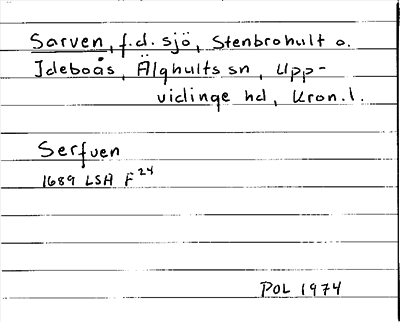 Sarven, f.d. sjö, Stenbrohult o.
Ideboås, Älghults sn, Upp-
vidinge hd, Kron.l.
Serfven
1689 LSA F24
POL 1974